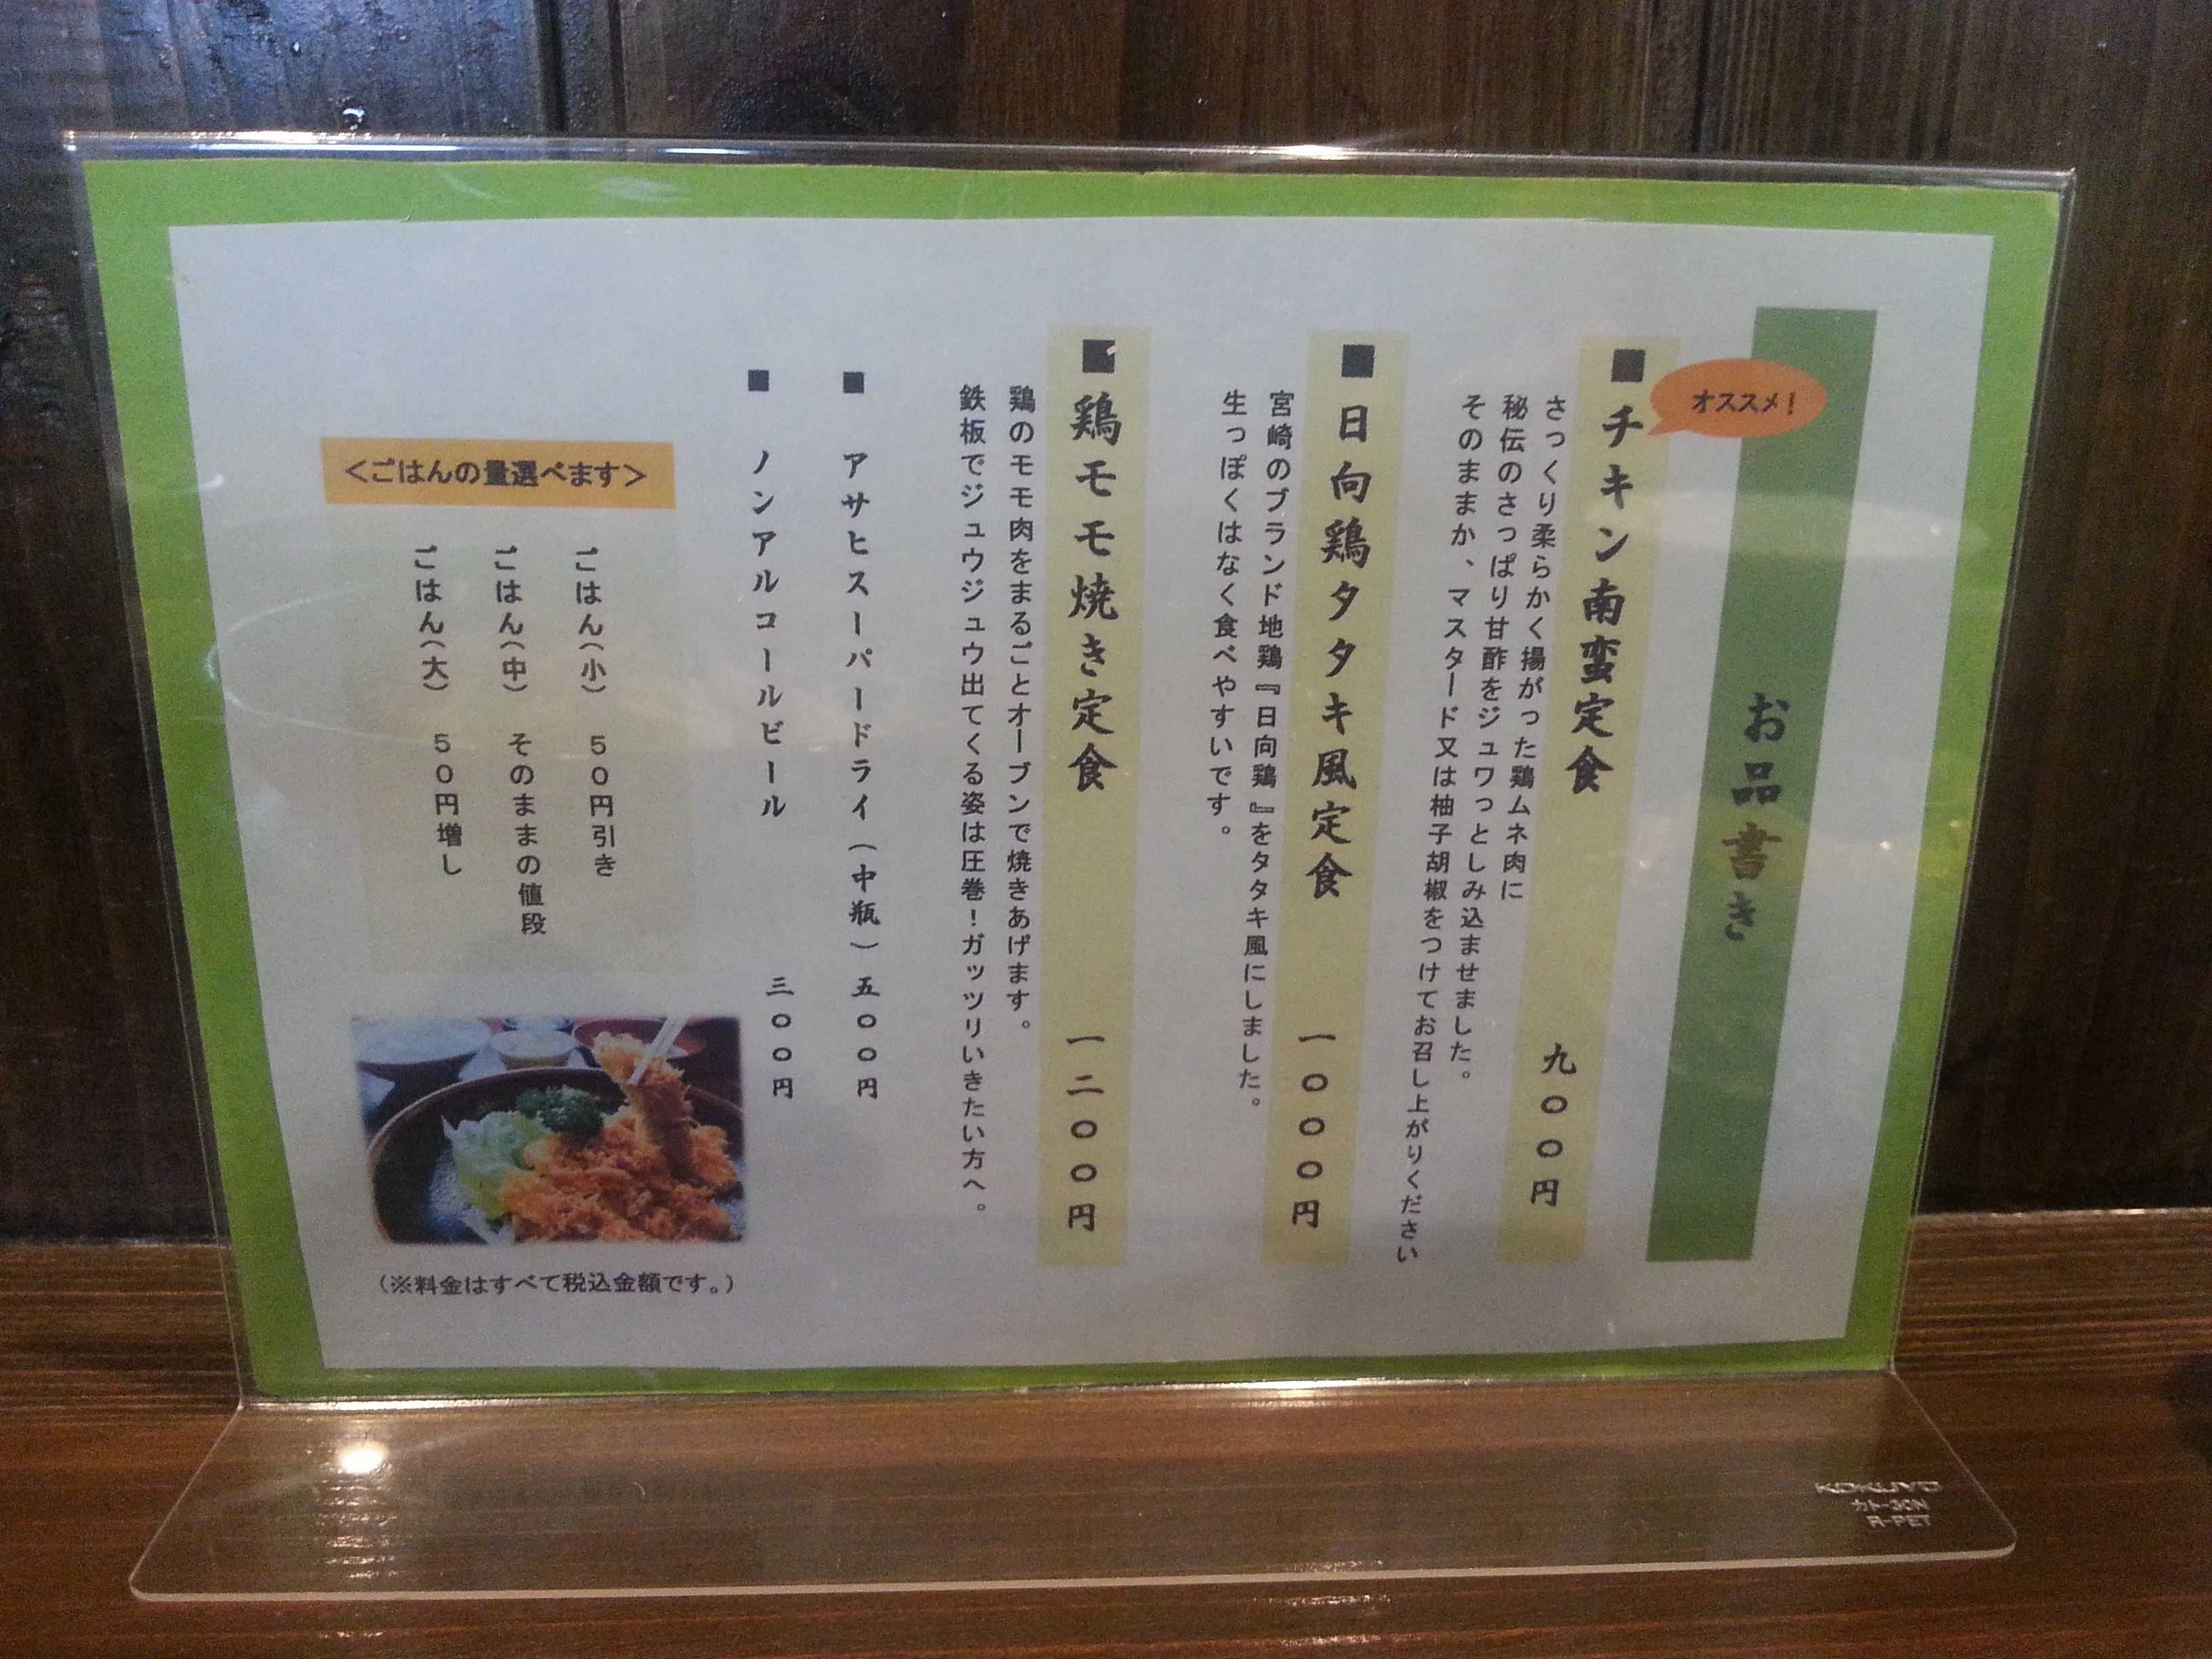 お品書き
オススメ!
■チキン南蛮定食 九〇〇円
さっくり柔らかく揚がった鶏ムネ肉に
秘伝のさっぱり甘酢をジュワっとしみ込ませました。
そのままか、マスタード又は柚子胡椒をつけてお召し上がりください
■日向鶏タタキ風定食 一〇〇〇円
宮崎のブランド地鶏『日向鶏』をタタキ風にしました。
生っぽくはなく食べやすいです。
■鶏モモ焼き定食 一二〇〇円
鶏のモモ肉をまるごとオーブンで焼きあげます。
鉄板でジュウジュウ出てくる姿は圧巻!ガッツリいきたい方へ。
■ アサヒスーパードライ(中瓶) 五〇〇円
■ ノンアルコールビール 三〇〇円
<ごはんの量選べます>
ごはん(小) 50円引き
ごはん(中) そのままの値段
ごはん(大) 50円増し
(※料金はすべて税込金額です。)
KOKUYO
カト-30N
R-PET